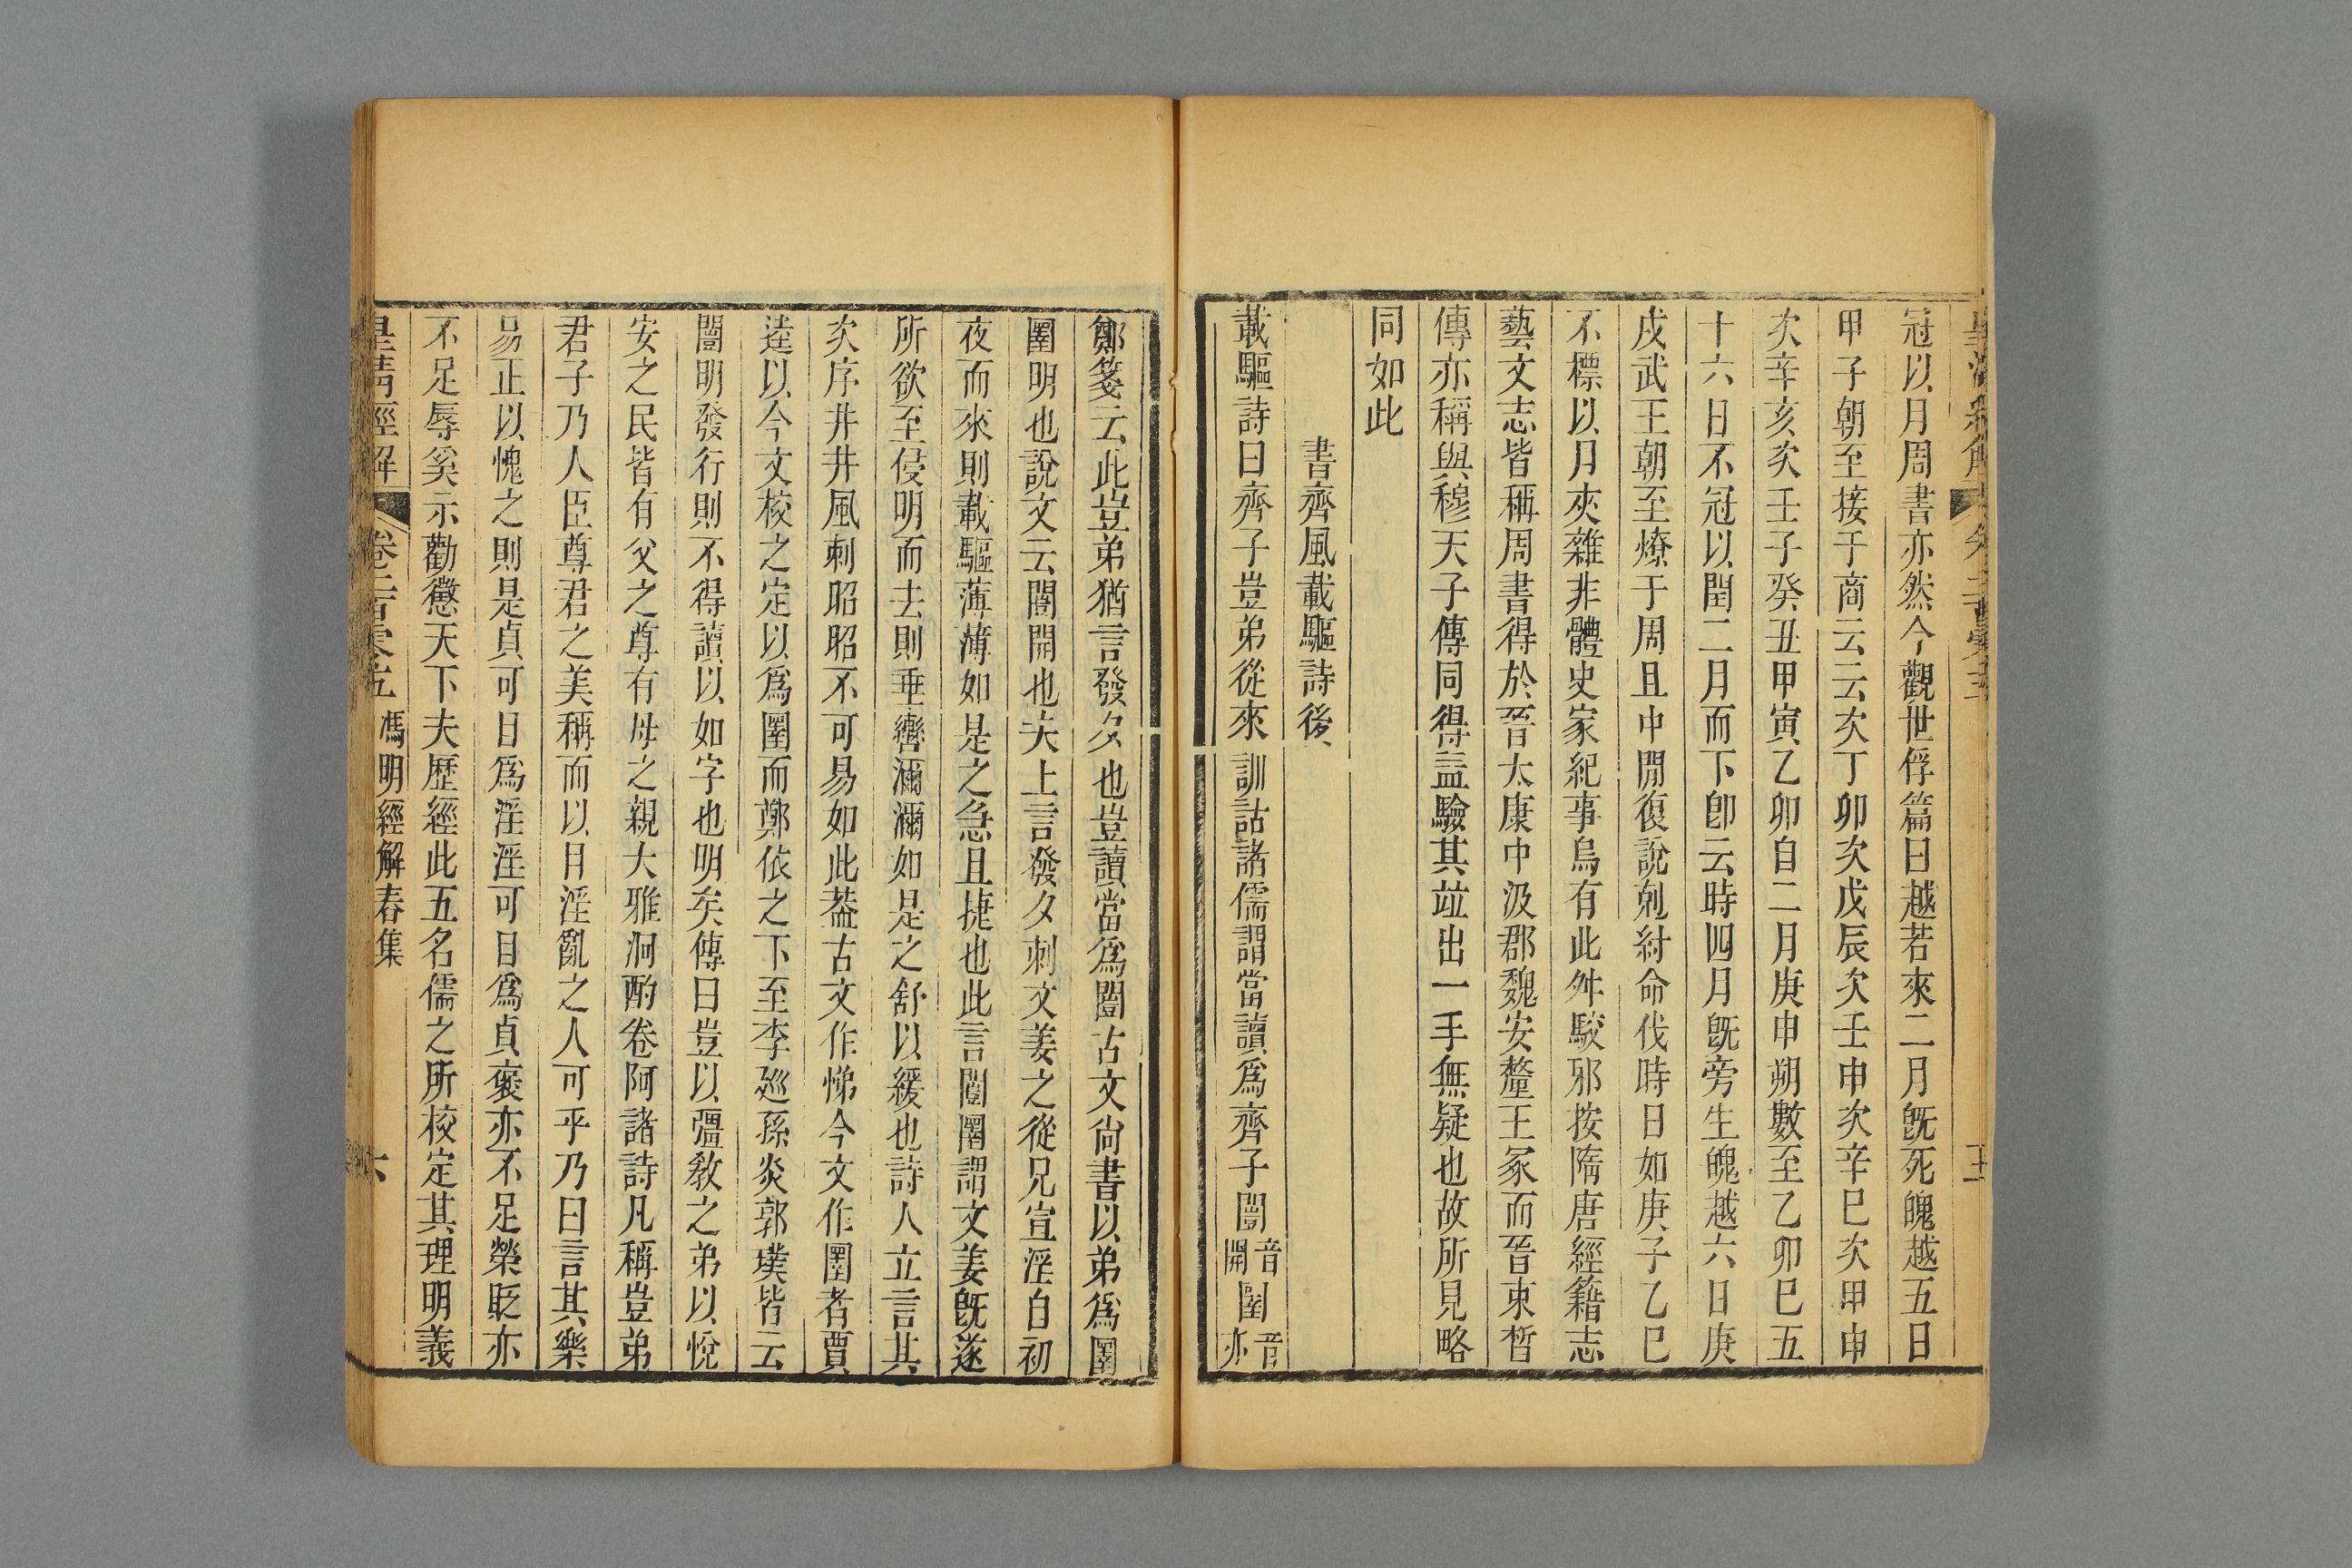 冠以月周書亦然今觀世俘篇曰越若來二月旣死魄越五日
甲子朝至接于商云云次丁卯次戊辰次壬申次辛巳次甲申
次辛亥次壬子癸丑甲寅乙卯自二月庚申朔數至乙卯巳五
十六日不冠以閏二月而下卽云時四月旣旁生魄越六日庚
戌武王朝至燎于周且中閒復說剋紂命伐時日如庚子乙巳
不標以月夾雜非體史家紀事烏有此舛駮邪按隋唐經籍志
藝文志皆稱周書得於晉太康中汲郡魏安釐王冢而晉束晳
傳亦稱與穆天子傳同得益驗其竝出一手無疑也故所見略
同如此
書齊風載驅詩後
載驅詩曰齊子豈弟從來訓詁諸儒謂當讀爲齊子闓音開圛音亦
鄭箋云此豈弟猶言發夕也豈讀當爲闓古文尙書以弟爲圛
圛明也說文云闓開也夫上言發夕刺文姜之從兄宣淫自初
夜而來則載驅薄薄如是之急且捷也此言闓圛謂文姜旣遂
所欲至侵明而去則垂轡濔濔如是之舒以緩也詩人立言其
次序井井風刺昭昭不可易如此葢古文作悌今文作圛者賈
逵以今文校之定以爲圛而鄭依之下至李廵孫炎郭璞皆云
闓明發行則不得讀以如字也明矣傳曰豈以彊敎之弟以悅
安之民皆有父之尊有母之親大雅泂酌卷阿諸詩凡稱豈弟
君子乃人臣尊君之美稱而以目淫亂之人可乎乃曰言其樂
易正以愧之則是貞可目爲淫淫可目爲貞褒亦不足榮貶亦
不足辱奚示勸懲天下夫歴經此五名儒之所校定其理明義
皇淸經解 卷二百零五 馮明經解舂集 六